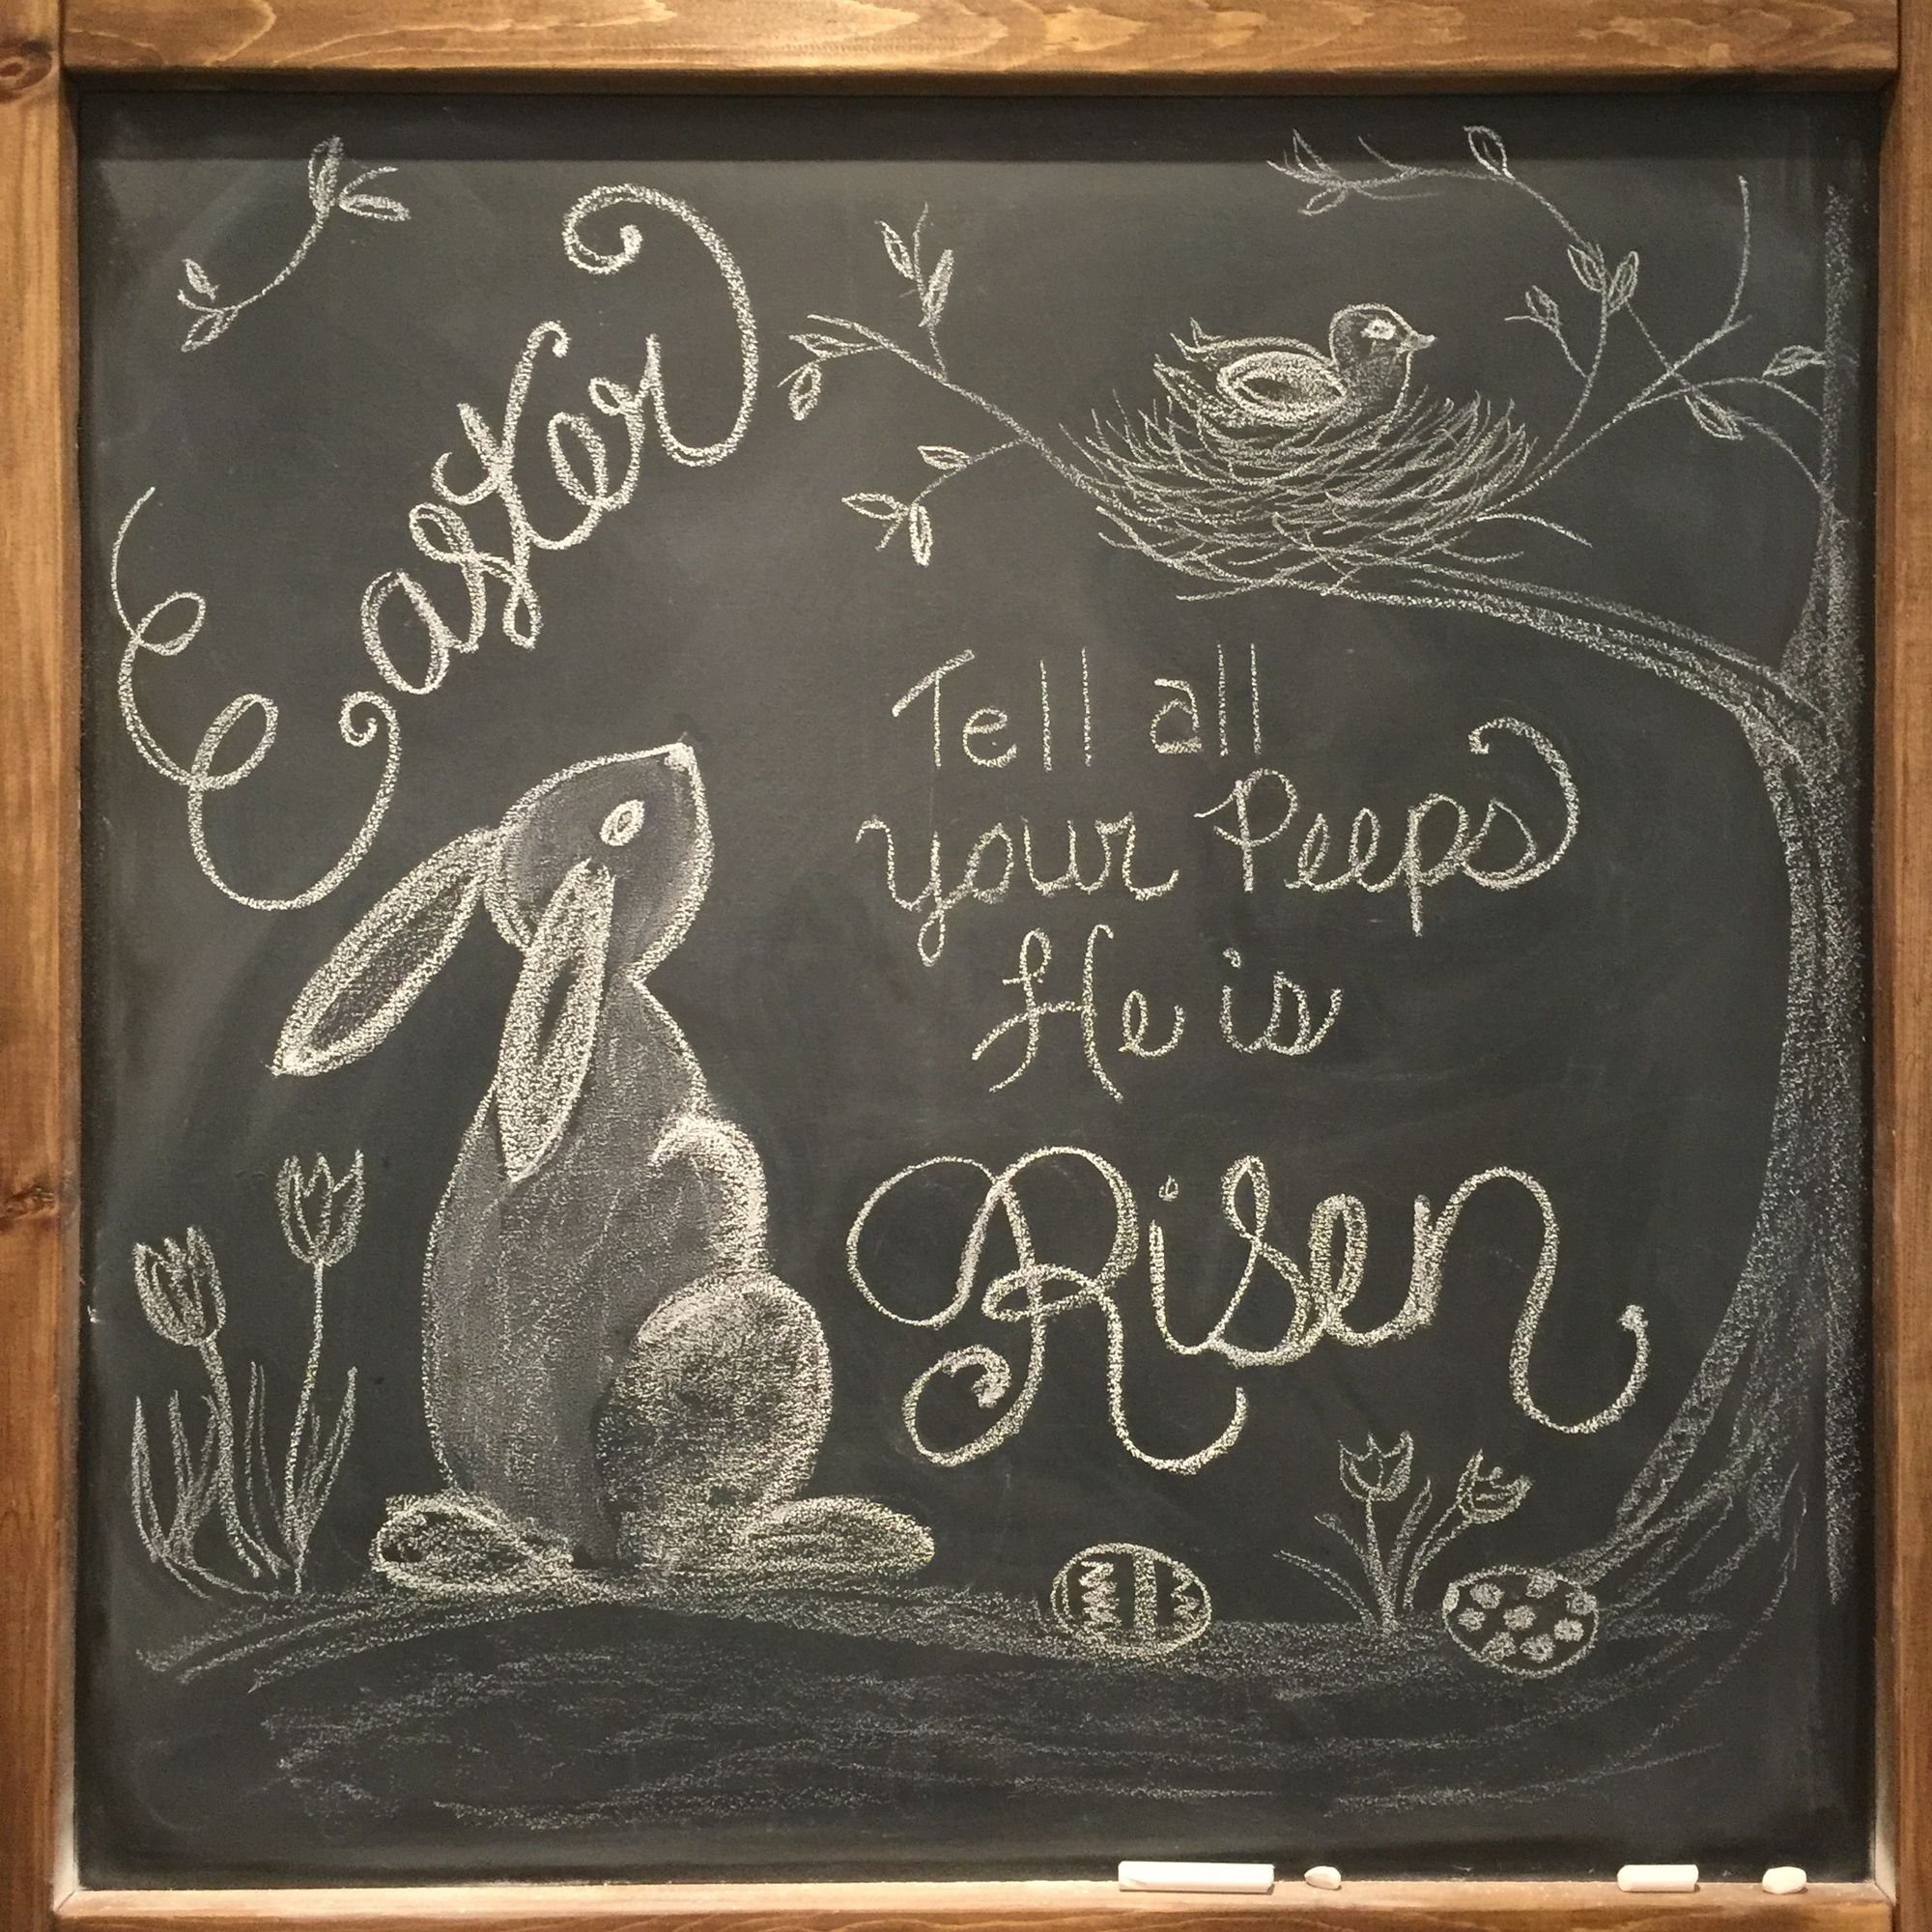 Easter
Tell all
your Peeps
He is
Risen